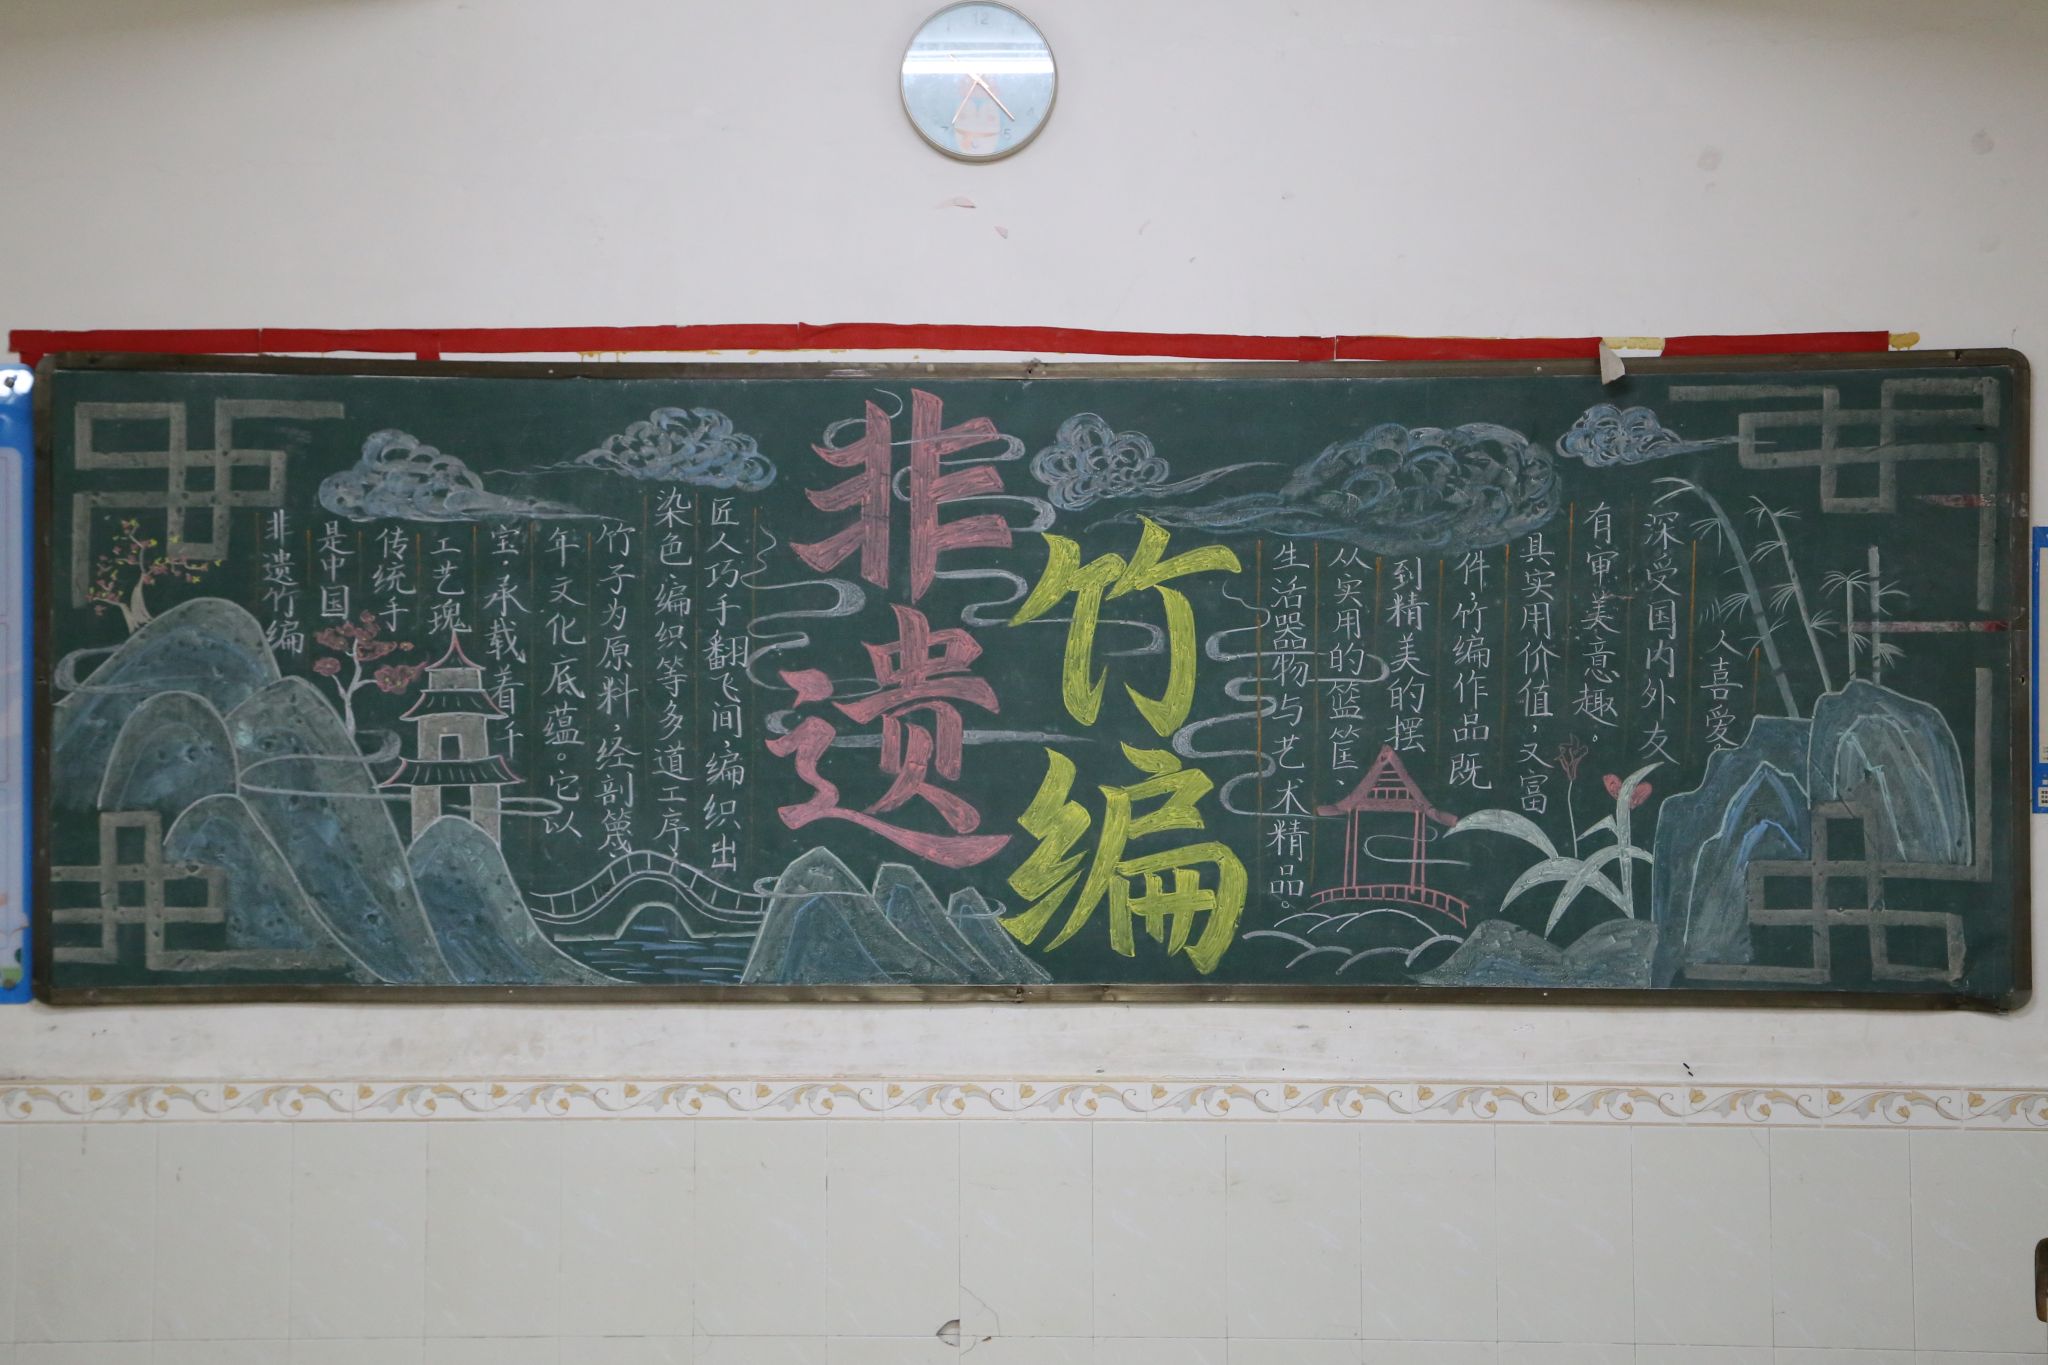 12
4
5
7
非遗
竹编
非遗竹编
是中国
传统手
工艺瑰
宝,承载着千
年文化底蕴。它以
竹子为原料,经剖篾、
染色、编织等多道工序,
匠人巧手翻飞间,编织出
生活器物与艺术精品。
从实用的篮筐、
到精美的摆
件,竹编作品既
具实用价值,又富
有审美意趣。
深受国内外友
人喜爱。